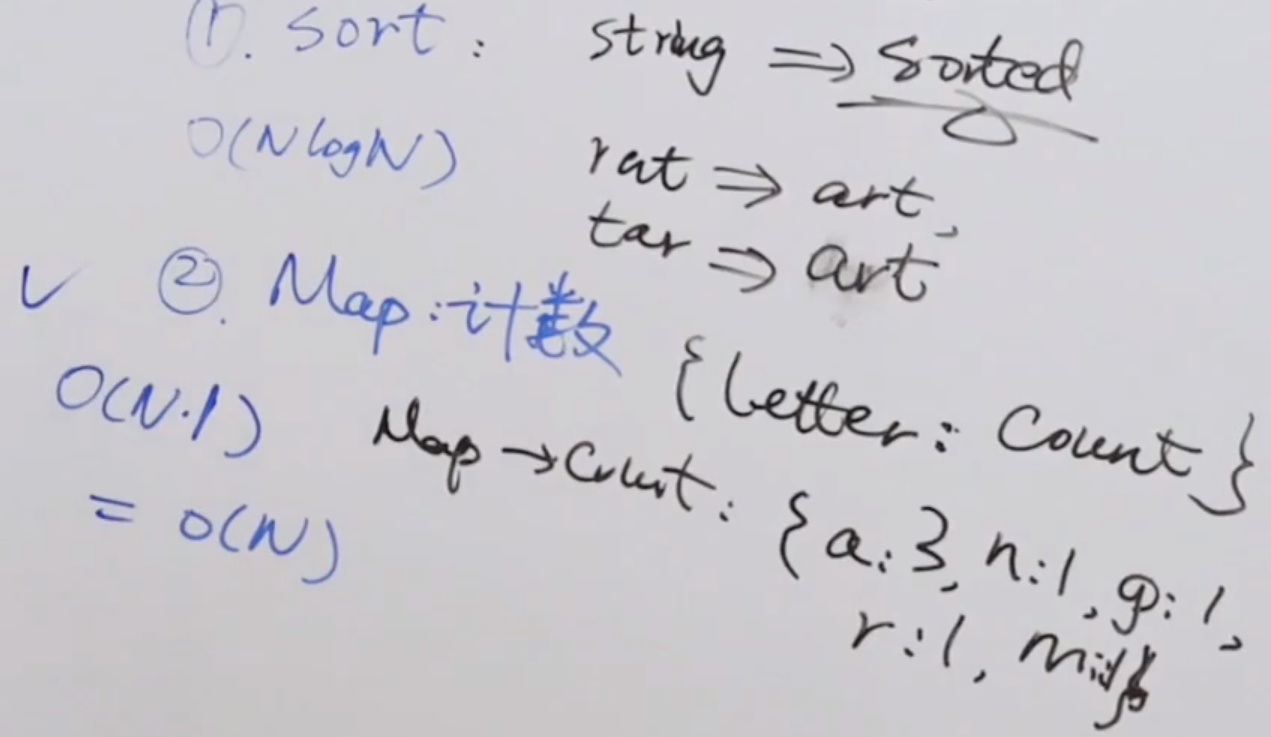 ①. sort: string ⇒ Sorted
O(NlogN) rat ⇒ art,
tar ⇒ art
✓ ②. Map:计数
{letter: Count}
O(N·1) Map→Count: {a:3, n:1, g:1,
= O(N) r:1, m:1}